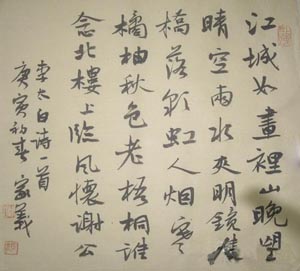 江城如畫裡山晚望
晴空兩水夾明鏡雙
橋落彩虹人烟寒
橘柚秋色老梧桐誰
念北樓上臨風懷謝公
李太白诗一首
庚寅初春 家義